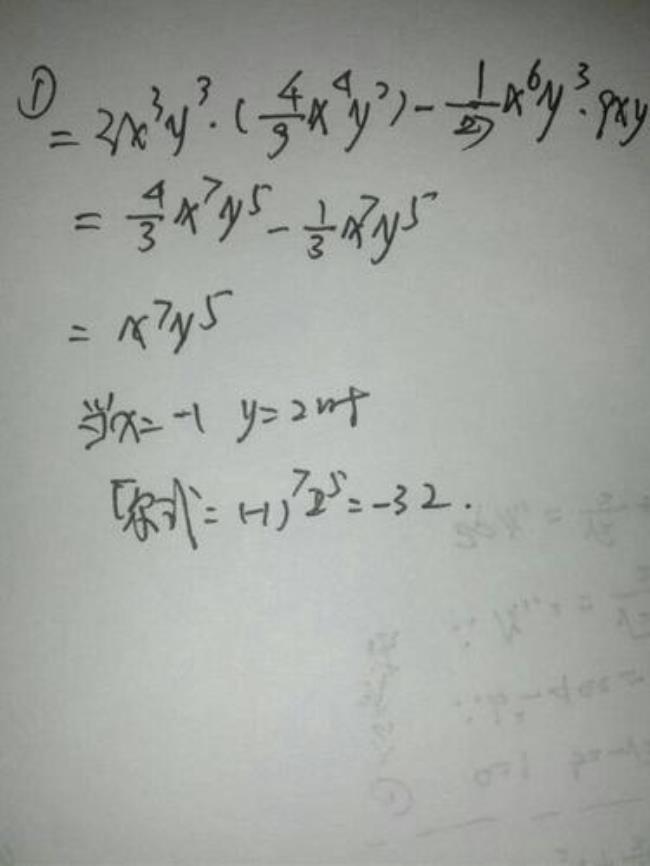 ① = 2x³y³·(4/9 x⁴y²) - 1/27 x⁶y³·9xy
= 4/3 x⁷y⁵ - 1/3 x⁷y⁵
= x⁷y⁵
当x=-1 y=2时
原式=(-1)⁷2⁵=-32.